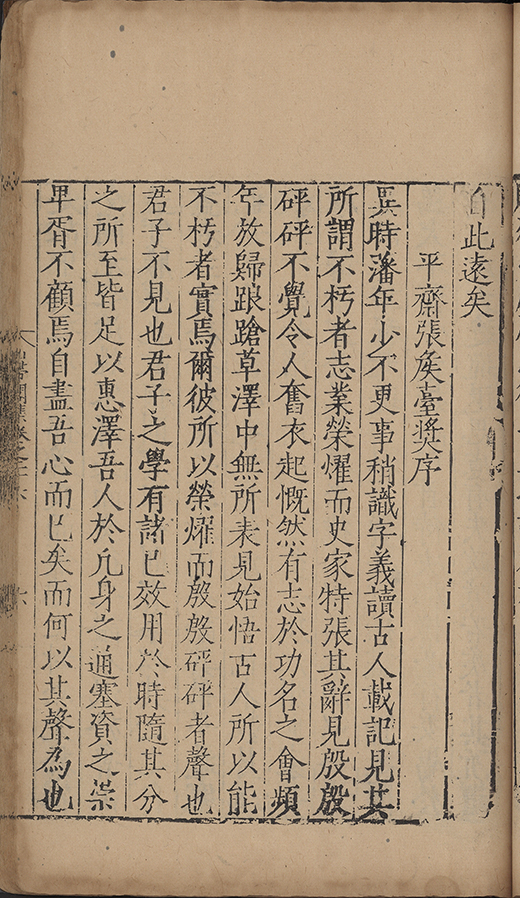 自此遠矣
平齋張矦臺奬序
曩時藩年少不更事稍識字義讀古人載記見其
所謂不朽者志業榮燿而史家特張其辭見殷殷
砰砰不覺令人奮衣起慨然有志於功名之會頻
年放歸踉蹌草澤中無所表見始悟古人所以能
不朽者實焉爾彼所以榮燿而殷殷砰砰者聲也
君子不見也君子之學有諸己效用於時隨其分
之所至皆足以惠澤吾人於凡身之通塞資之崇
卑胥不顧焉自盡吾心而已矣而何以其聲為也
卷之十六 六